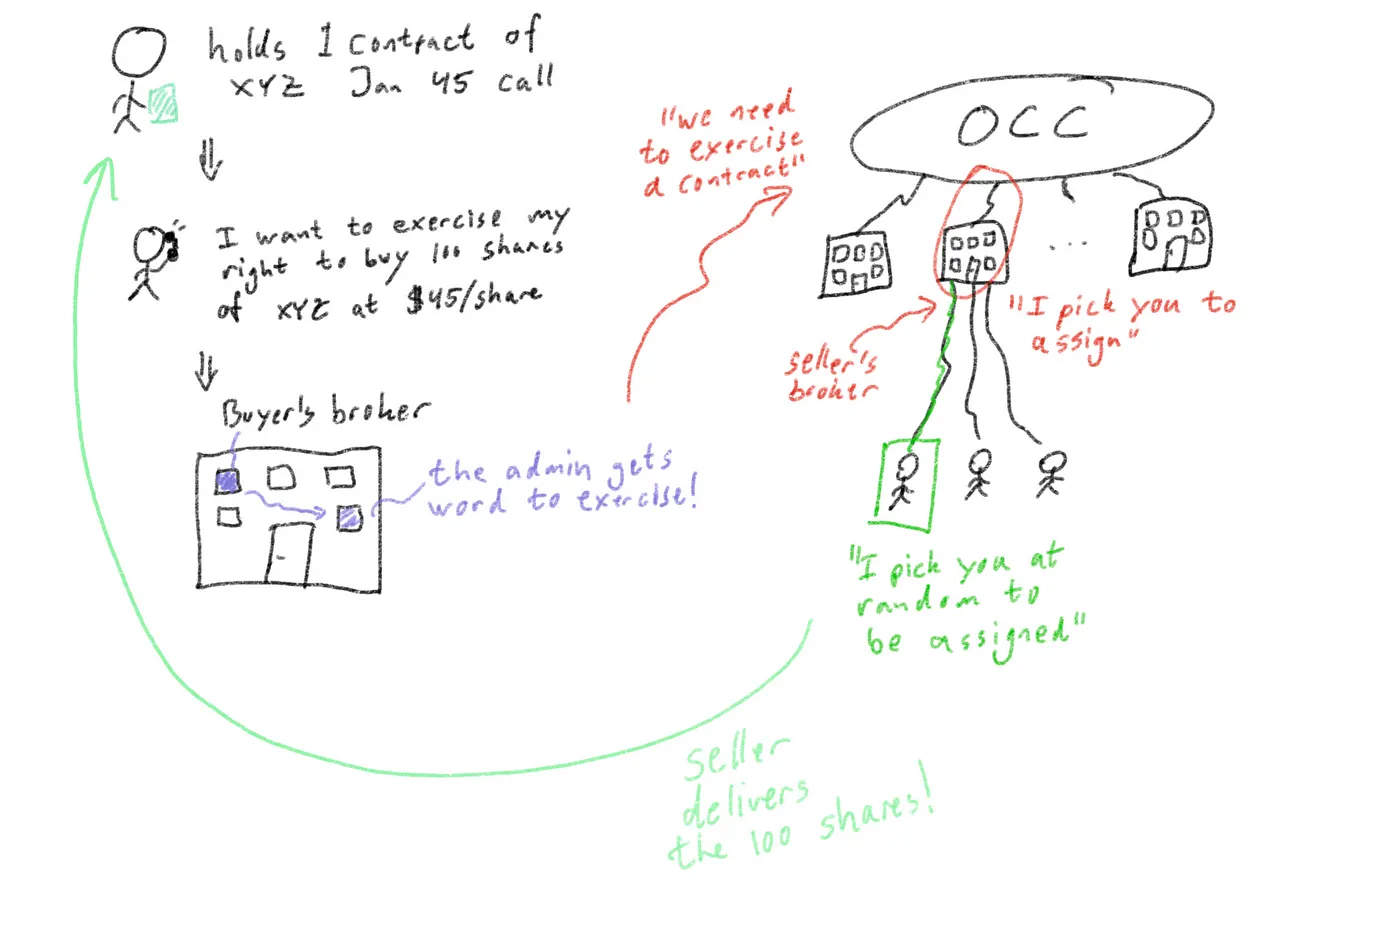 holds 1 contract of
XYZ Jan 45 call
I want to exercise my
right to buy 100 shares
of XYZ at $45/share
Buyer's broker
the admin gets
word to exercise!
"we need
to exercise
a contract"
OCC
...
seller's
broker
"I pick you to
assign"
"I pick you at
random to
be assigned"
seller
delivers
the 100 shares!